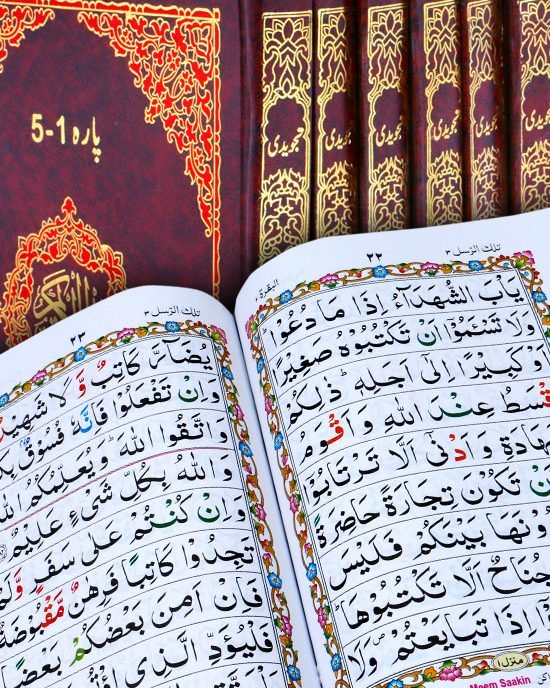 پارہ 1-5
تجویدی
تجویدی
تجویدی
تجویدی
تجویدی
البقرة ٢
٢٢
تلك الرسل ٣
يَاْبَ الشُّهَدَآءُ اِذَا مَا دُعُوْا
وَلَا تَسْـَٔمُوْٓا اَنْ تَكْتُبُوْهُ صَغِيْرًا
اَوْ كَبِيْرًا اِلٰٓى اَجَلِهٖ ذٰلِكُمْ
قْسَطُ عِنْدَ اللّٰهِ وَ اَقْوَمُ
هَادَةِ وَ اَدْنٰٓى اَلَّا تَرْتَابُوْٓا
نْ تَكُوْنَ تِجَارَةً حَاضِرَةً
وْنَهَا بَيْنَكُمْ فَلَيْسَ
جُنَاحٌ اَلَّا تَكْتُبُوْهَا
ا اِذَا تَبَايَعْتُمْ وَلَا
منزل ١
Meem Saakin
٢٣
تلك الرسل ٣
يُضَآرَّ كَاتِبٌ وَّ لَا شَهِيْدٌ
وَ اِنْ تَفْعَلُوْا فَاِنَّهٗ فُسُوْقٌۢ بِكُ
وَ اتَّقُوا اللّٰهَ وَ يُعَلِّمُكُمُ اللّٰ
وَ اللّٰهُ بِكُلِّ شَيْءٍ عَلِيْمٌ
وَ اِنْ كُنْتُمْ عَلٰى سَفَرٍ وَّ لَ
تَجِدُوْا كَاتِبًا فَرِهٰنٌ مَّقْبُوْضَةٌ
فَاِنْ اَمِنَ بَعْضُكُمْ بَعْضًا
فَلْيُؤَدِّ الَّذِي اؤْتُ